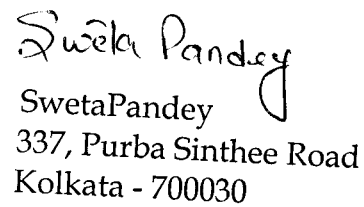 Sweta Pandey
SwetaPandey
337, Purba Sinthee Road
Kolkata - 700030